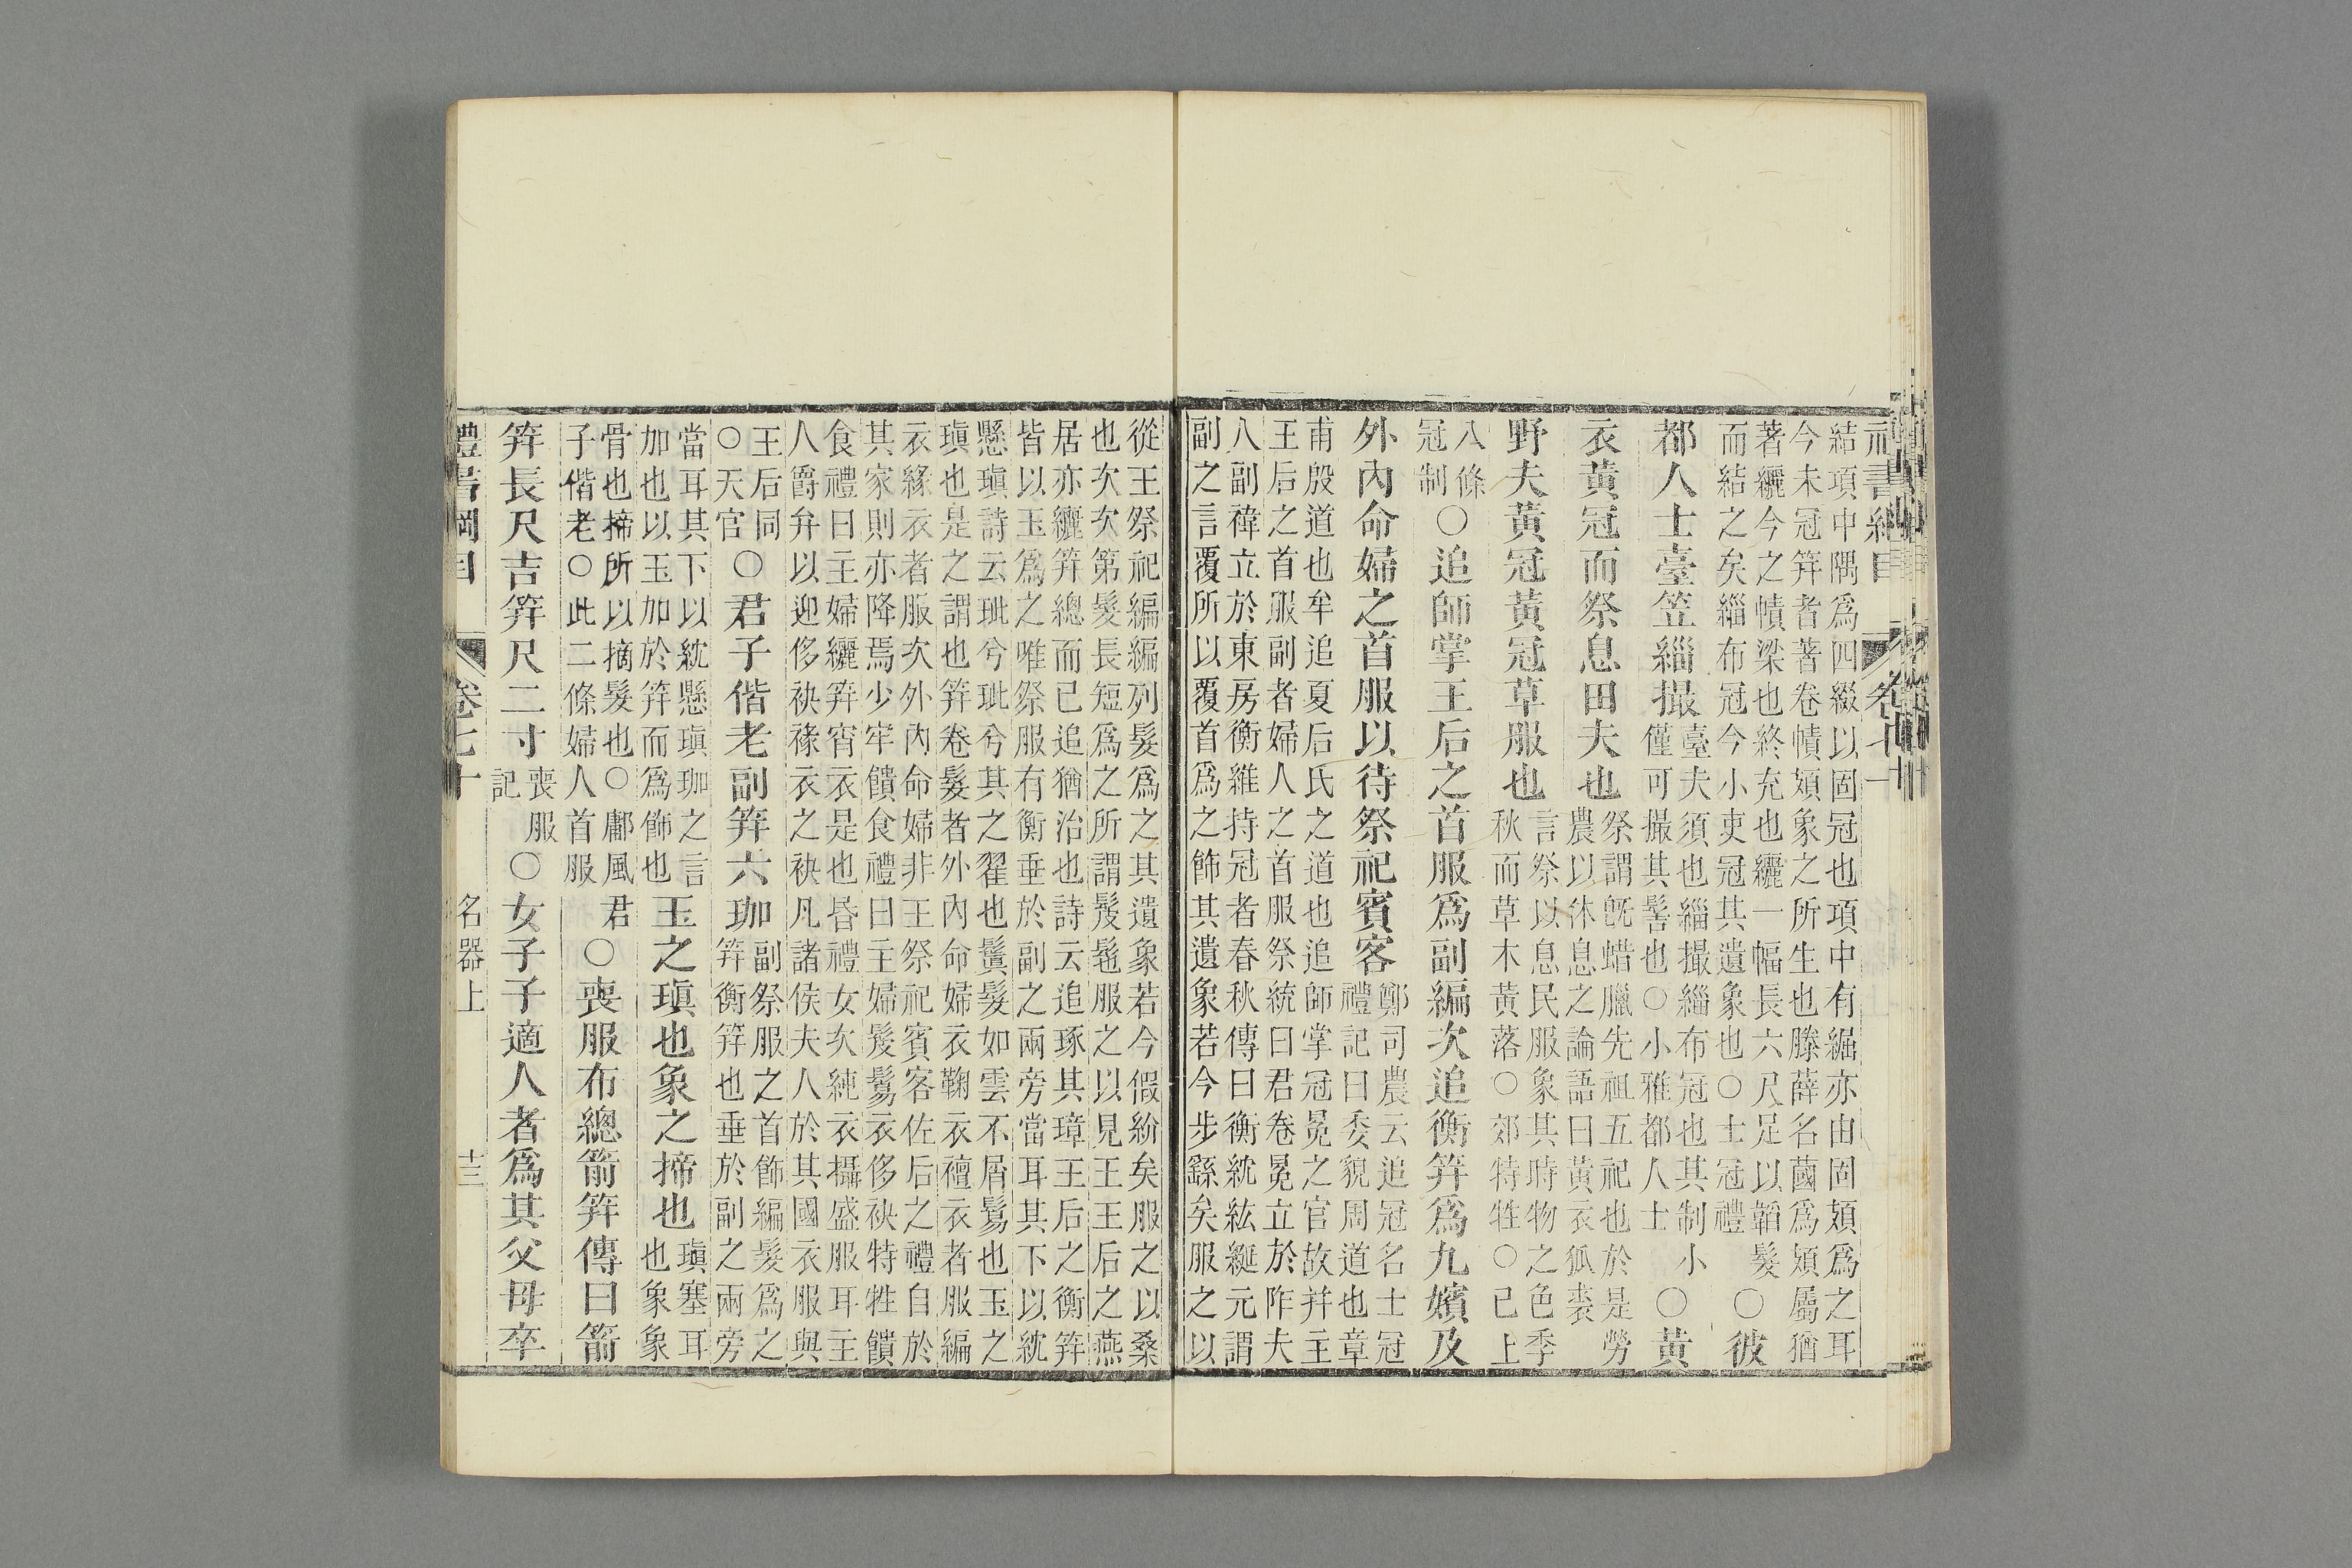 結項中隅爲四綴以固冠也項中有䌸亦由固頍爲之耳
今未冠笄者著卷幘頍象之所生也滕薛名蔮爲頍屬猶
著纚今之幘梁也終充也纚一幅長六尺足以韜髮
而結之矣緇布冠今小吏冠其遺象也○士冠禮
○彼
都人士臺笠緇撮
臺夫須也緇撮緇布冠也其制小
僅可撮其髻也○小雅都人士
○黃
衣黃冠而祭息田夫也
祭謂旣蜡臘先祖五祀也於是勞
農以休息之論語曰黃衣狐裘
野夫黃冠黃冠草服也
言祭以息民服象其時物之色季
秋而草木黃落○郊特牲○已上
八條
冠制
○追師掌王后之首服爲副編次追衡笄爲九嬪及
外內命婦之首服以待祭祀賓客
鄭司農云追冠名士冠
禮記曰委貌周道也章
甫殷道也牟追夏后氏之道也追師掌冠冕之官故幷主
王后之首服副者婦人之首服祭統曰君卷冕立於阼夫
人副褘立於東房衡維持冠者春秋傳曰衡紞紘綖元謂
副之言覆所以覆首爲之飾其遺象若今步繇矣服之以
從王祭祀編編列髮爲之其遺象若今假紒矣服之以桑
也次次第髮長短爲之所謂髲髢服之以見王王后之燕
居亦纚笄總而已追猶治也詩云追琢其璋王后之衡笄
皆以玉爲之唯祭服有衡垂於副之兩旁當耳其下以紞
懸瑱詩云玼兮玼兮其之翟也鬒髮如雲不屑鬄也玉之
瑱也是之謂也笄卷髮者外內命婦衣鞠衣襢衣者服編
衣緣衣者服次外內命婦非王祭祀賓客佐后之禮自於
其家則亦降焉少牢饋食禮曰主婦髲鬄衣侈袂特牲饋
食禮曰主婦纚笄宵衣是也昏禮女次純衣攝盛服耳主
人爵弁以迎侈袂褖衣之袂凡諸侯夫人於其國衣服與
王后同
○天官
○君子偕老副笄六珈
副祭服之首飾編髮爲之
笄衡笄也垂於副之兩旁
當耳其下以紞懸瑱珈之言
加也以玉加於笄而爲飾也
玉之瑱也象之揥也
瑱塞耳
也象象
骨也揥所以摘髮也○鄘風君
子偕老○此二條婦人首服
○喪服布總箭笄傳曰箭
笄長尺吉笄尺二寸
喪服
記
○女子子適人者爲其父母卒
卷七十
名器上
十三